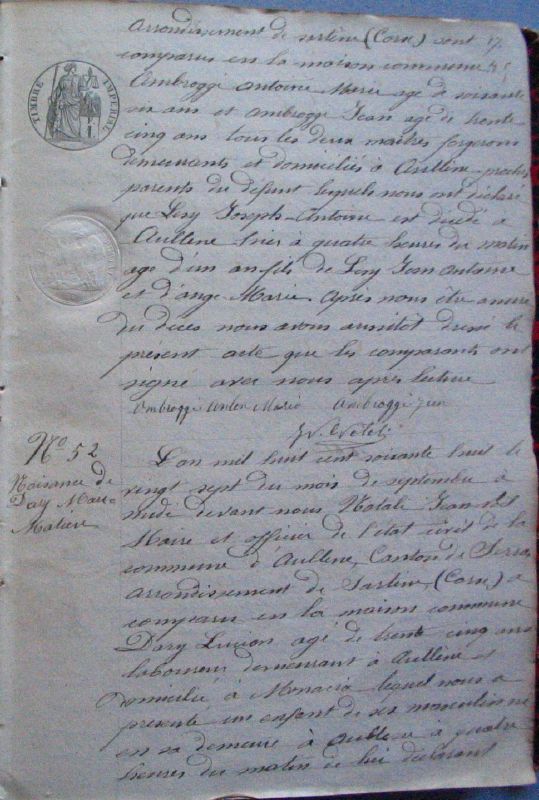 arrondissement de sartène (Corse) sont 17
comparus en la maison commune
Ambroggi Antoine Marie agé de soixante
six ans et Ambroggi Jean agé de trente
cinq ans tous les deux maîtres forgerons
demeurants et domiciliés à Aullene proches
parents du défunt lesquels nous ont déclaré
que Joseph-Antoine est décédé à
Aullene hier à quatre heures du matin
age d'un an fils de Jean Antoine
et d'ange Marie Après nous être assuré
du décès nous avons aussitot dressé le
présent acte que les comparants ont
signé avec nous après lecture
TIMBRE IMPERIAL
Ambroggi Anton Maria Ambroggi
No 52
Naissance de
Marie
L'an mil huit cent soixante huit le
vingt sept du mois de septembre à
midi devant nous Jean
Maire et officier de l'état civil de la
commune d'Aullene, Canton de Serra
arrondissement de Sartène, (Corse) a
comparu en la maison commune
agé de trente cinq ans
laboureur demeurant à Aullene et
domicilié à Monacia lequel nous a
présenté un enfant de sexe masculin né
en sa demeure à Aullene à quatre
heures du matin de lui déclarant